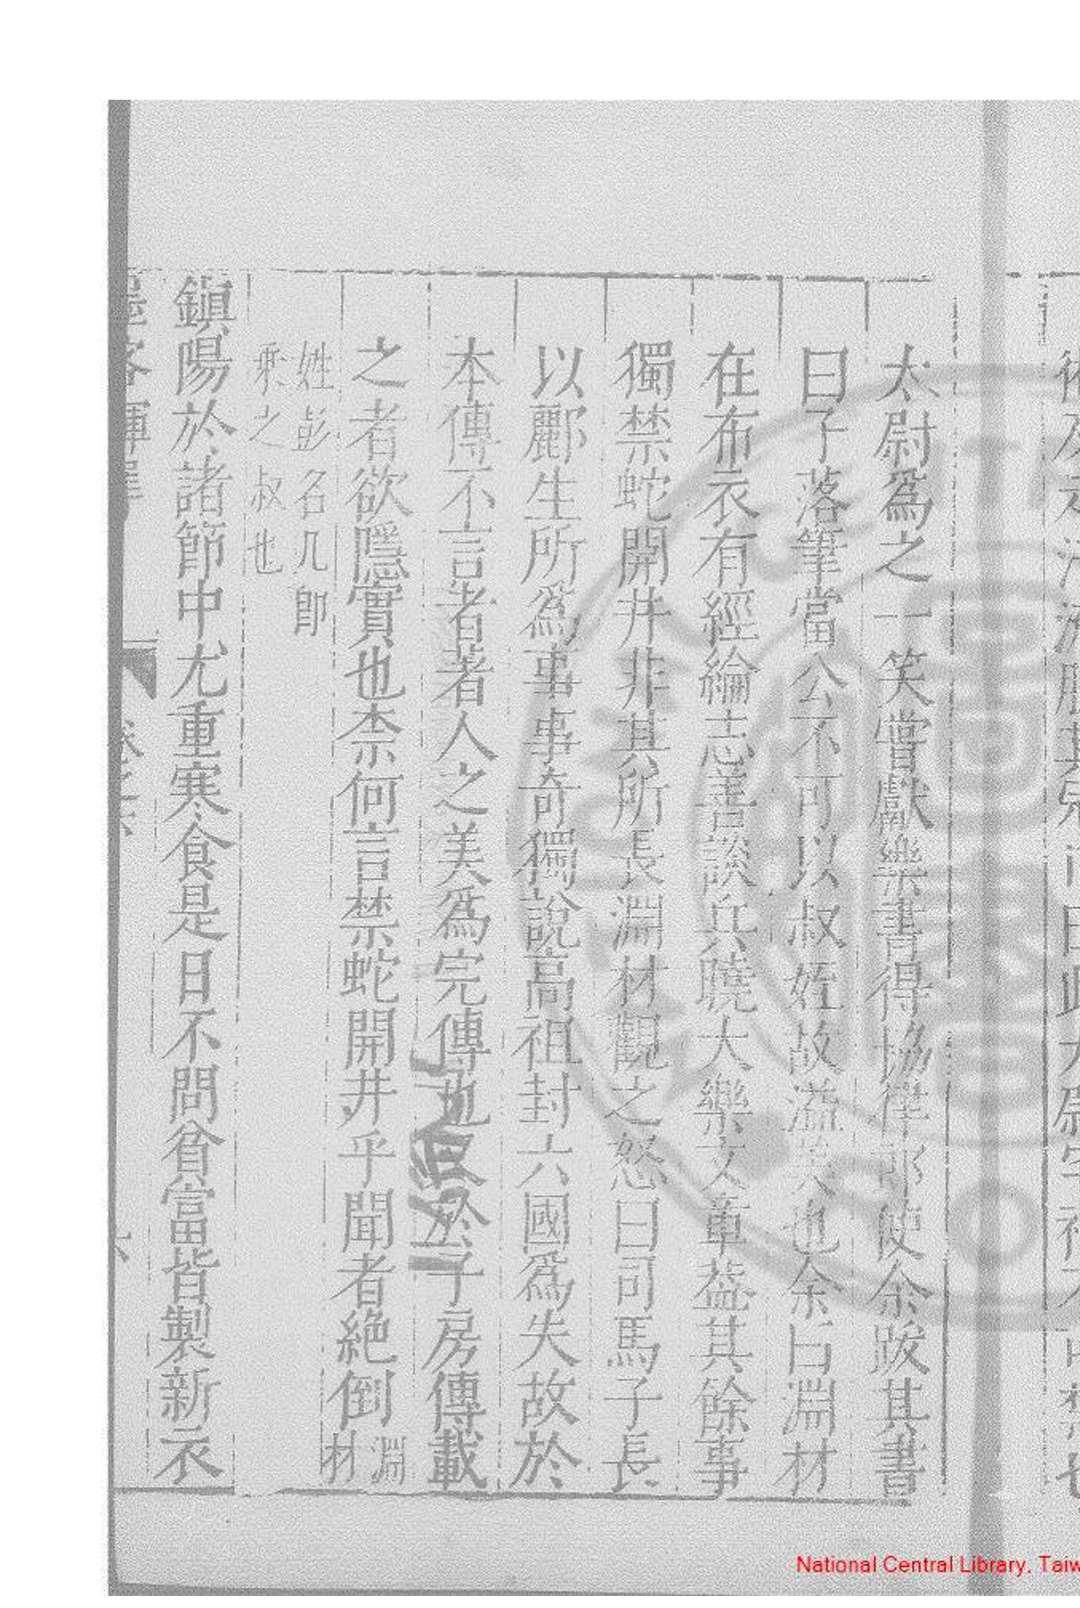 太尉爲之一笑嘗獻樂書得協律郎使余跋其書
曰子落筆當公不可以叔姪故溢美也余曰淵材
在布衣有經綸志善談兵曉大樂文章葢其餘事
獨禁蛇開井非其所長淵材觀之怒曰司馬子長
以酈生所爲事事奇獨說高祖封六國爲失故於
本傳不言者著人之美爲完傳也 於子房傳載
之者欲隱實也柰何言禁蛇開井乎聞者絶倒淵材
姓彭名几卽
乘之叔也
鎮陽於諸節中尤重寒食是日不問貧富皆製新衣
墨客揮犀
National Central Library, Taiw